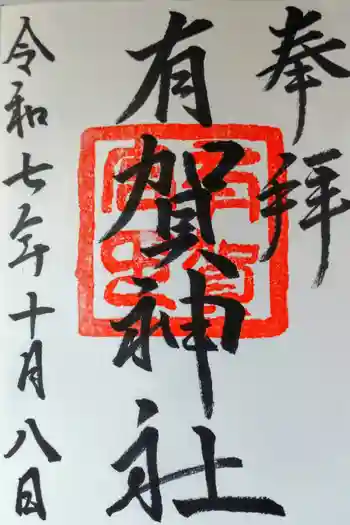 奉拝
有賀神社
令和七年十月八日